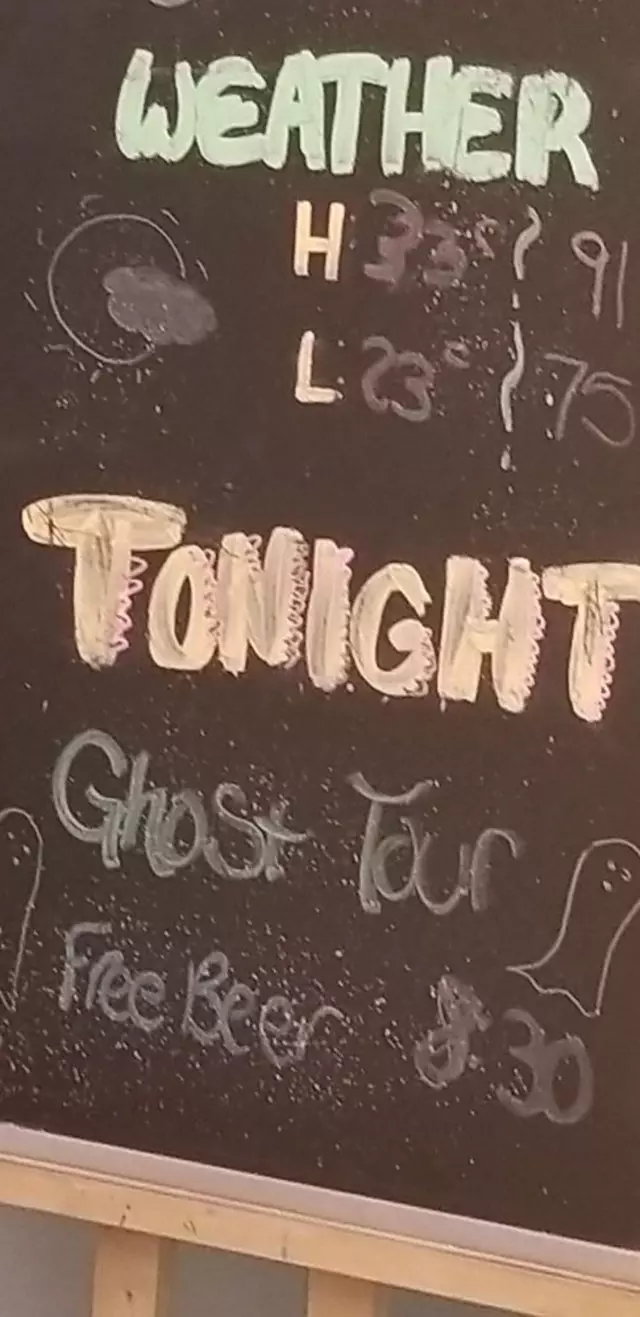 WEATHER
H 33° 91
L 23° 75
TONIGHT
Ghost Tour
Free Beer $30